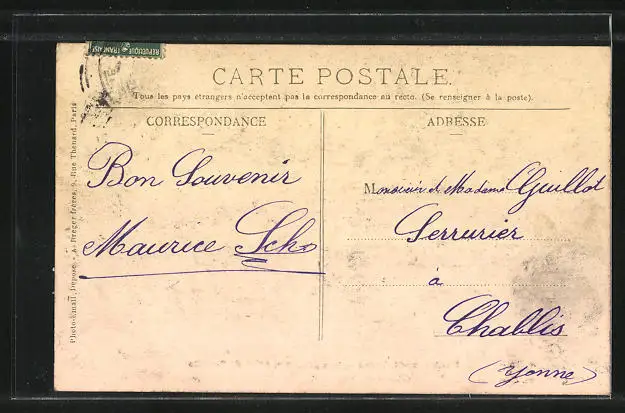 RÉPUBLIQUE FRANÇAISE
CARTE POSTALE.
Tous les pays étrangers n'acceptent pas la correspondance au recto. (Se renseigner à la poste).
CORRESPONDANCE
Bon Souvenir
Maurice Sch
ADRESSE
Monsieur et Madame Guillot
Serrurier
à
Chablis
(Yonne)
Photo-Email Déposé. - A. Breger frères, 9, Rue Thénard, Paris